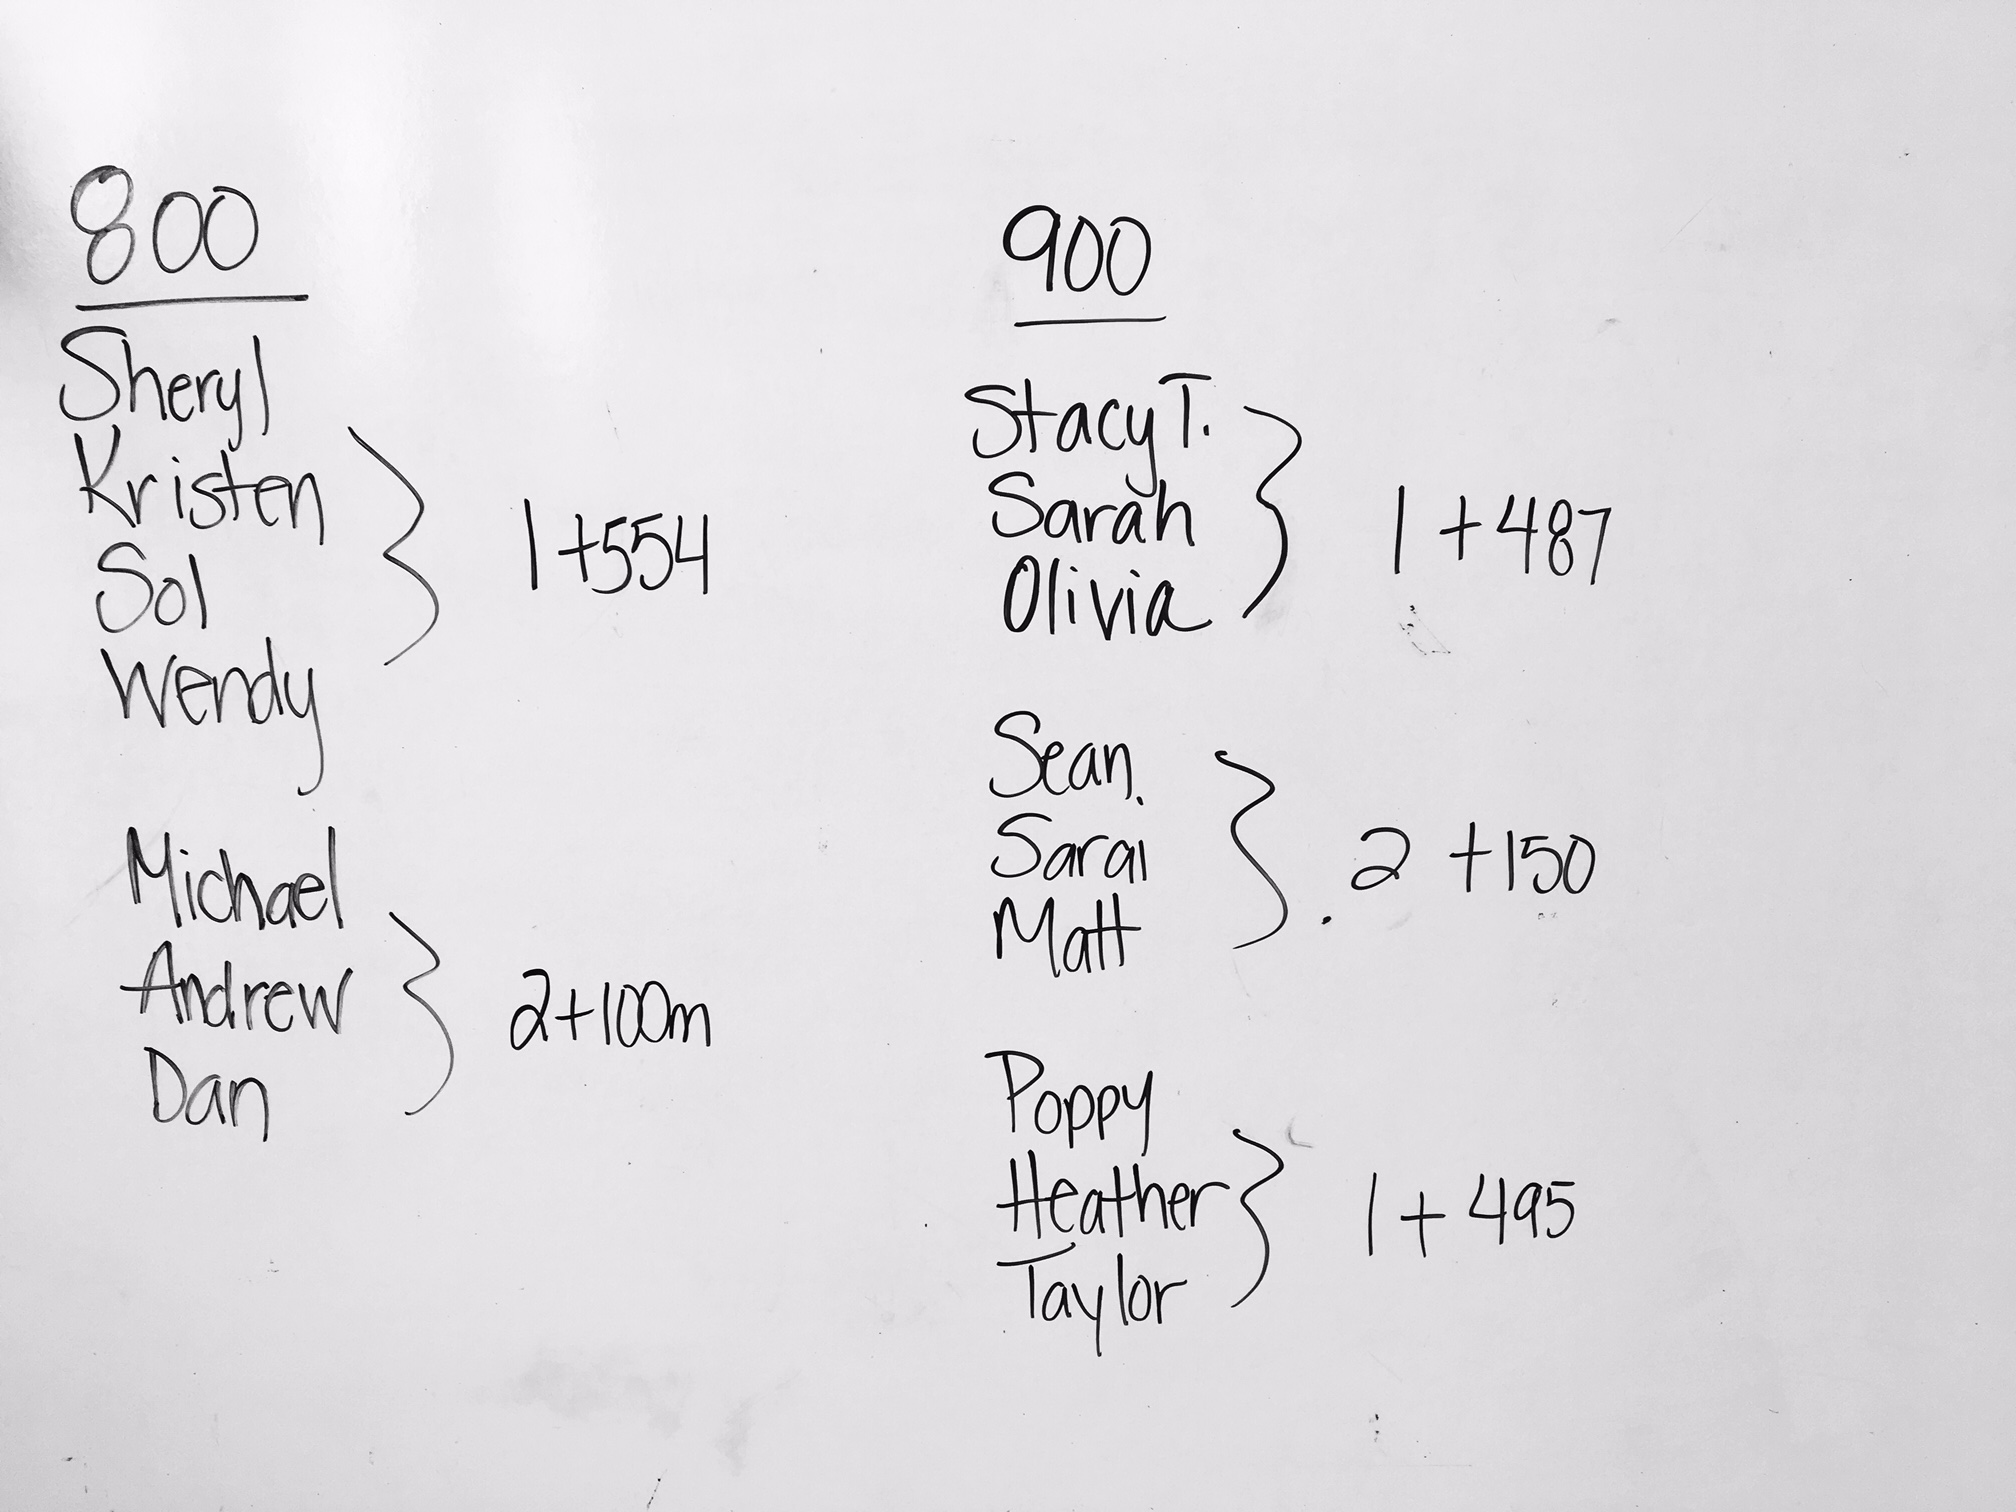 800
Sheryl
Kristen
Sol
Wendy
1+554
Michael
Andrew
Dan
2+100m
900
Stacy T.
Sarah
Olivia
1 + 487
Sean
Sarai
Matt
2 +150
Poppy
Heather
Taylor
1 + 495